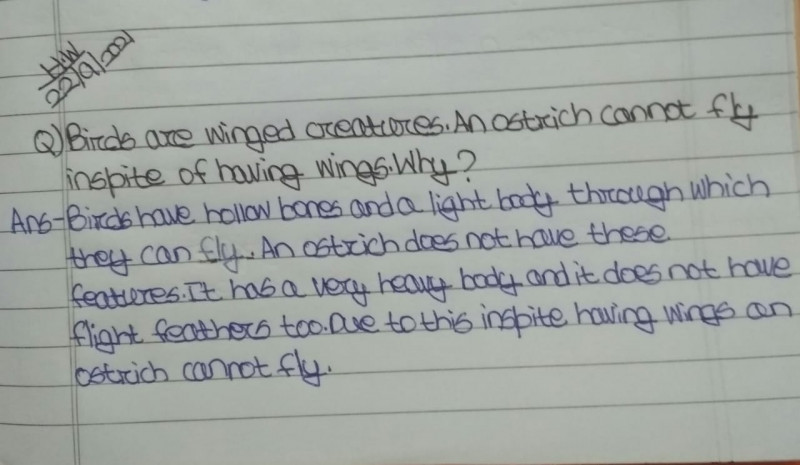 H.W
22/9/2021
Q) Birds are winged creatures. An ostrich cannot fly
inspite of having wings. Why?
Ans- Birds have hollow bones and a light body through which
they can fly. An ostrich does not have these
features. It has a very heavy body and it does not have
flight feathers too. Due to this inspite having wings an
ostrich cannot fly.